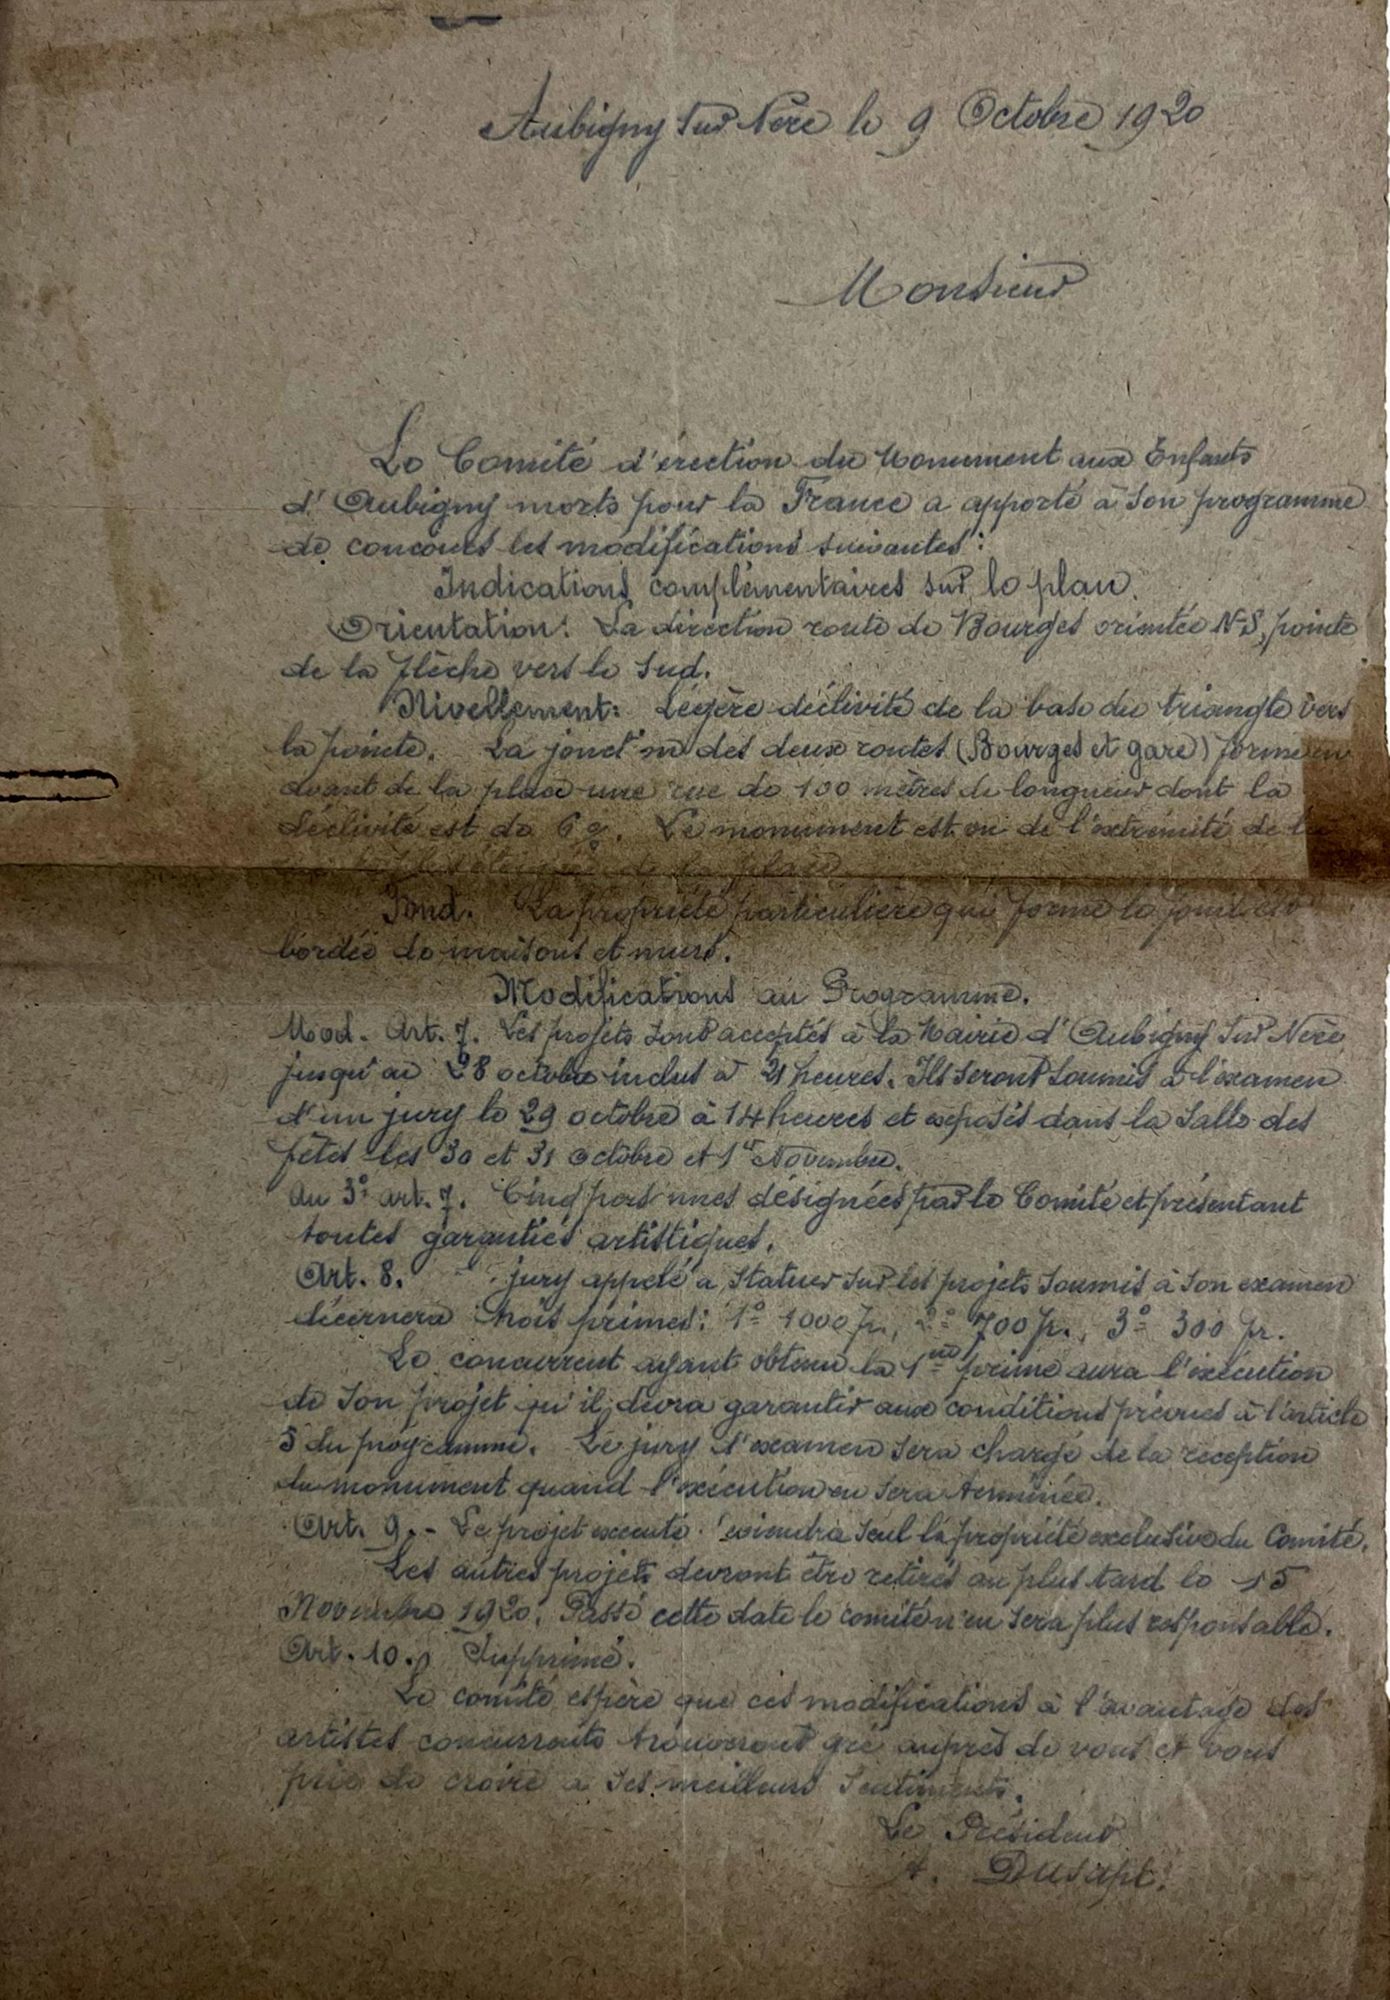 Aubigny sur Nère le 9 Octobre 1920
Monsieur
Le Comité d'érection du Monument aux Enfants
d'Aubigny morts pour la France a apporté à son programme
de concours les modifications suivantes :
Indications complémentaires sur le plan.
Orientation : La direction route de Bourges orientée N-S, pointe
de la flèche vers le Sud.
Nivellement : Légère déclivité de la base du triangle vers
la pointe. La jonct'on des deux routes (Bourges et gare) forme en
avant de la place une rue de 100 mètres de longueur dont la
déclivité est de 6 %. Le monument est vu de l'extrémité de la
de la place
Fond. La propriété particulière qui forme le fond est
bordée de maisons et murs.
Modifications au Programme.
Mod. Art. 7. Les projets sont acceptés à la Mairie d'Aubigny sur Nère
jusqu'au 28 octobre inclus à 21 heures. Ils seront soumis à l'examen
d'un jury le 29 octobre à 14 heures et exposés dans la Salle des
fêtes les 30 et 31 octobre et 1er Novembre.
Au 3° art. 7. Cinq pers nnes désignées par le Comité et présentant
toutes garanties artistiques.
Art. 8. jury appelé à statuer sur les projets soumis à son examen
décernera trois primes : 1° 1000 fr., 2° 700 fr., 3° 300 fr.
Le concurrent ayant obtenu la 1ère prime aura l'exécution
de son projet qu'il devra garantir aux conditions prévues à l'article
5 du programme. Le jury d'examen sera chargé de la réception
du monument quand l'exécution en sera terminée.
Art. 9. - Le projet exécuté eviendra seul la propriété exclusive du Comité.
Les autres projets devront être retirés au plus tard le 15
Novembre 1920. Passé cette date le comité n'en sera plus responsable.
Art. 10. Supprimé.
Le comité espère que ces modifications à l'avantage des
artistes concurrents trouveront gré auprès de vous et vous
prie de croire à ses meilleurs sentiments.
Le Président
A. Dusapt.